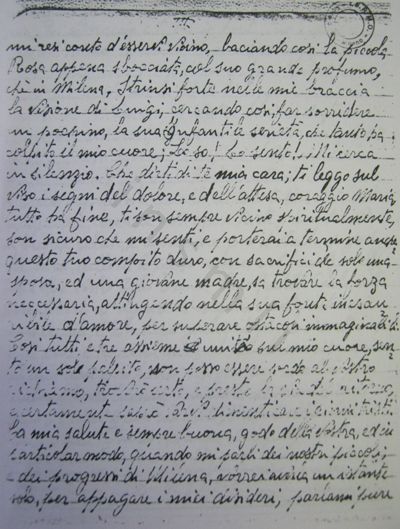 III
mi resi conto d'esserti vicino, baciando così la piccola
Rosa appena sbocciata, col suo grande profumo,
che in Milena, strinsi forte nelle mie braccia
la visione di Luigi, cercando così far sorridere
un pochino, la sua infantile serietà, che tanto ha
colpito il mio cuore; Lo so! Lo sento! Mi cerca
in silenzio. Che dirti di te mia cara; ti leggo sul
viso i segni del dolore, e dell'attesa, coraggio Maria
tutto ha fine, ti son sempre vicino spiritualmente,
son sicuro che mi senti, e porterai a termine anche
questo tuo compito duro, con sacrifici che solo una
sposa, ed una giovane madre, sa trovare la forza
necessaria, attingendo nella sua fonte inesau-
d'amore, per superare ostacoli immaginabili.
Così tutti e tre assieme uniti sul mio cuore, sen-
to un solo palpito, non posso essere sordo al vostro
richiamo,
certamente
la mia salute è sempre buona, godo della vostra, ed in
particolar modo, quando mi parli dei nostri piccoli,
e dei progressi di Milena, vorrei un istante
solo, per appagare i miei desideri, pure